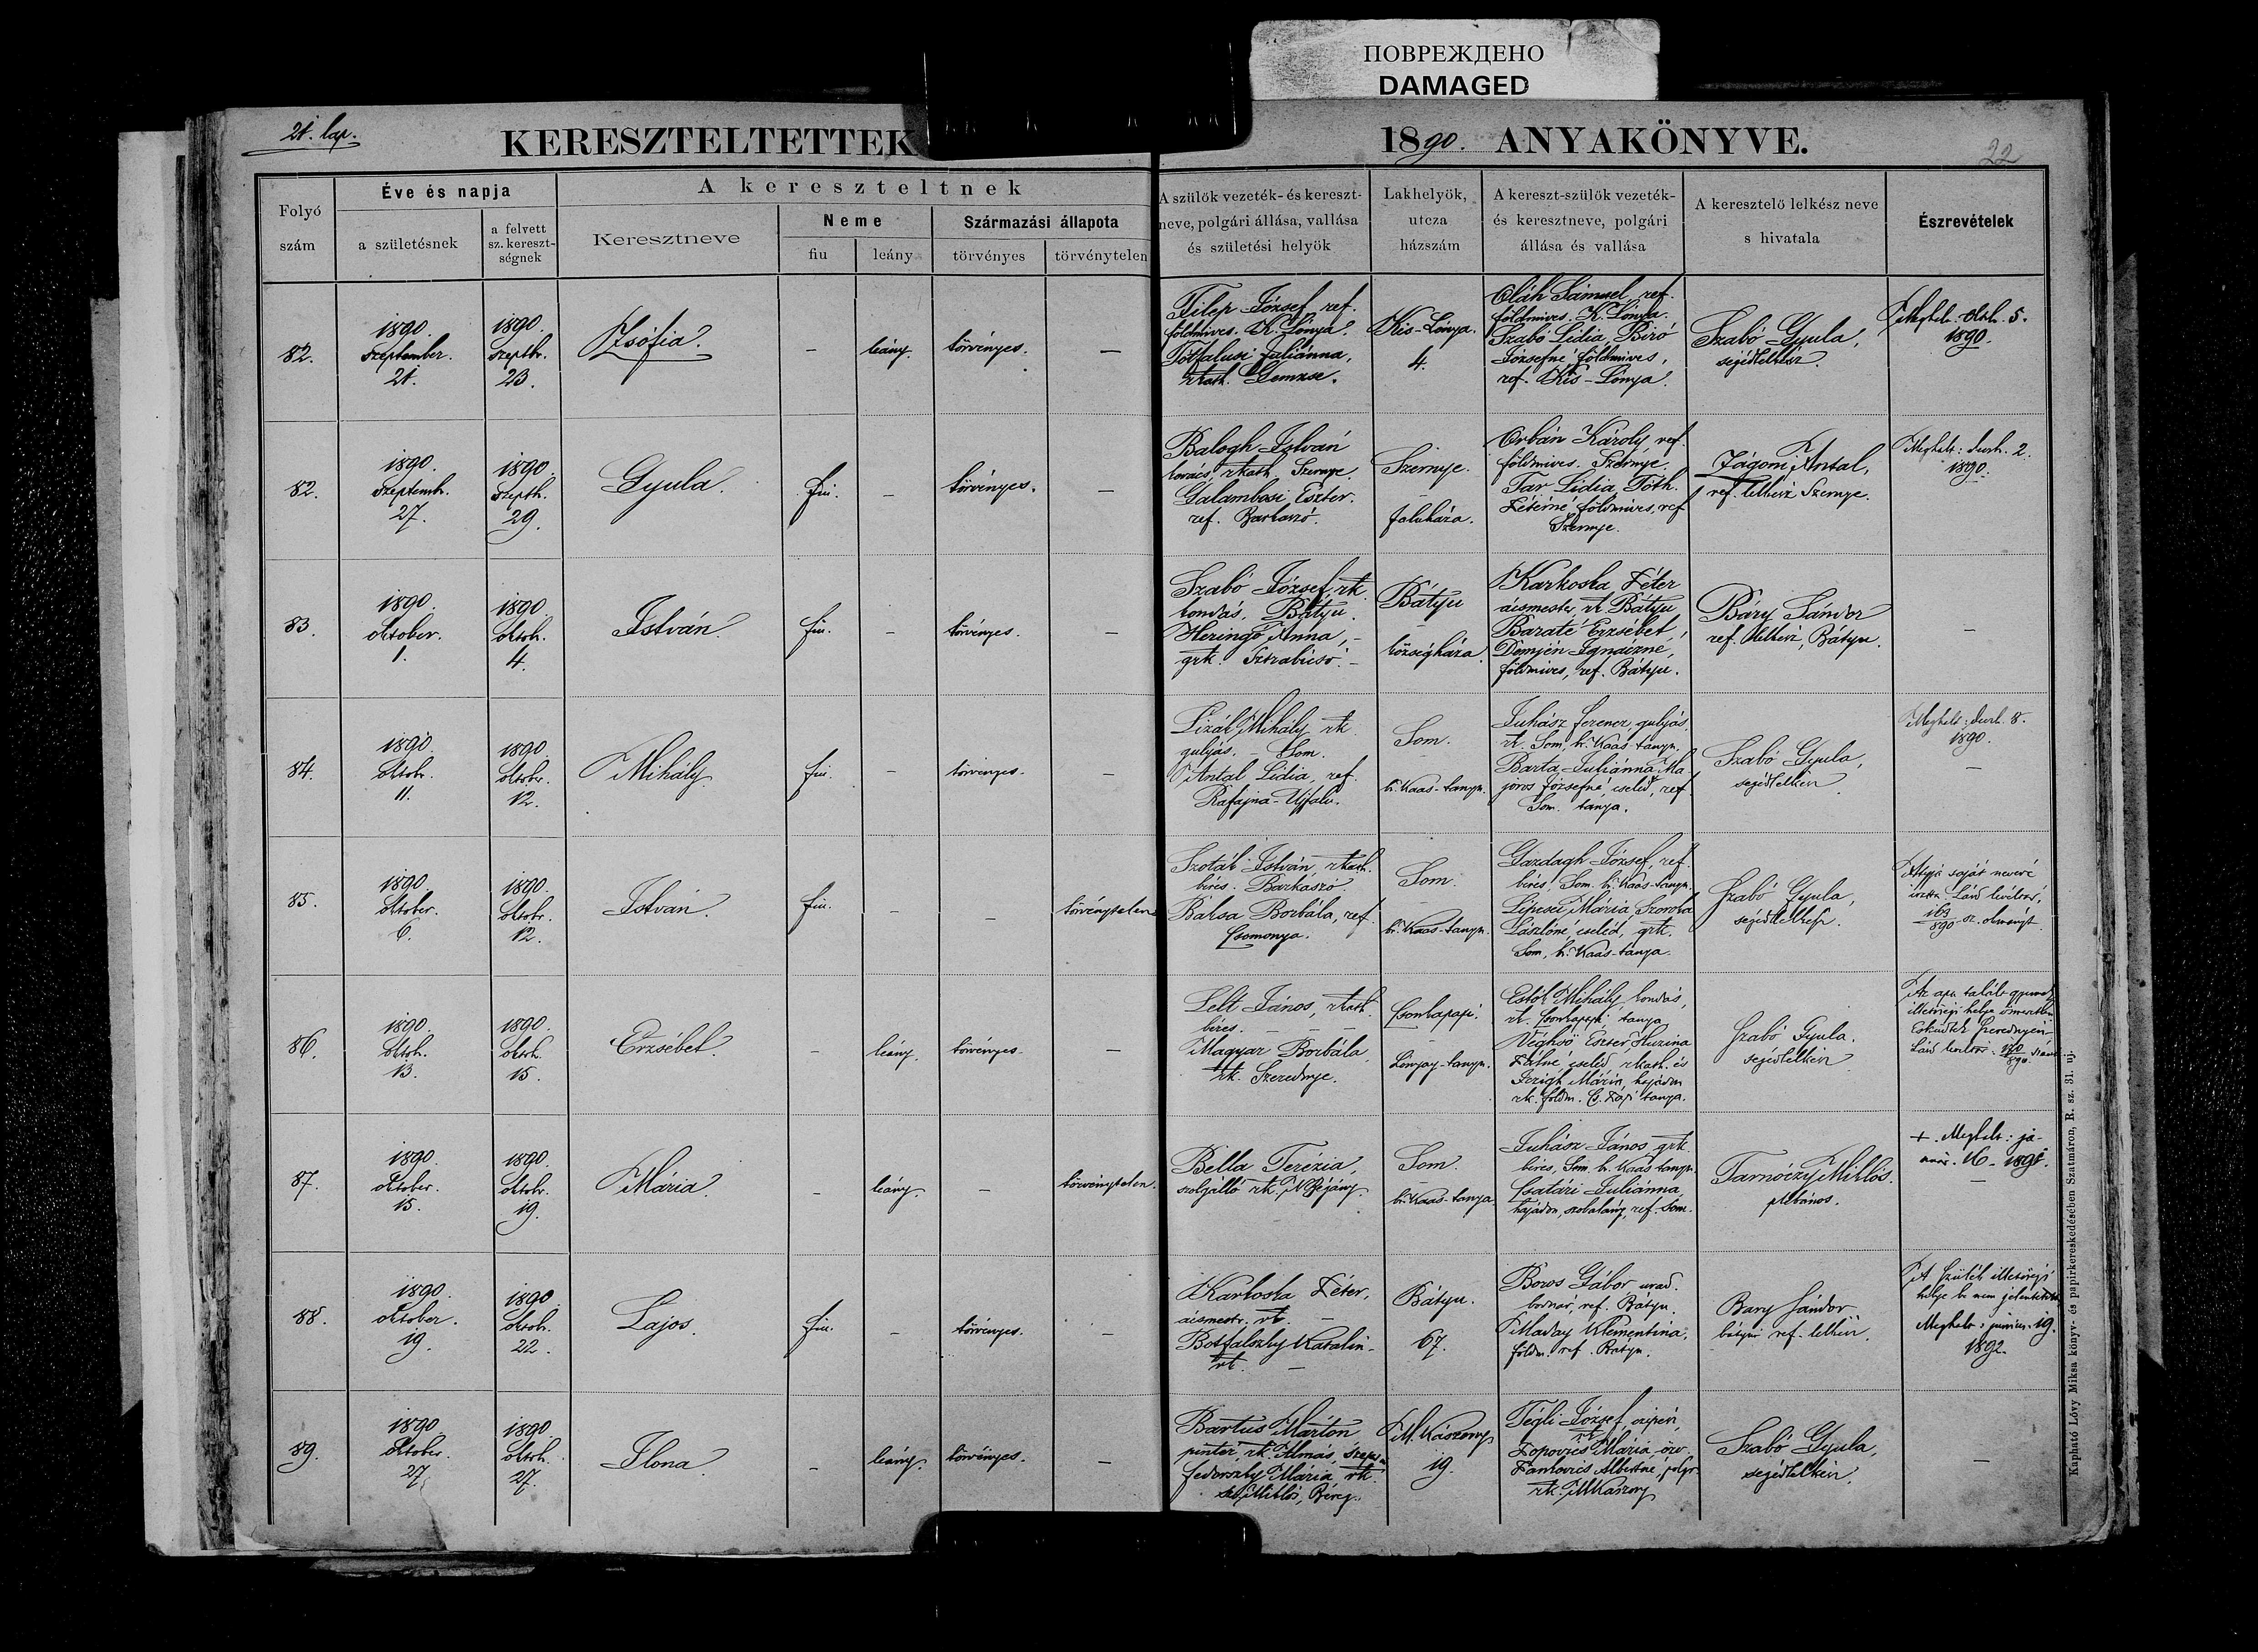 ПОВРЕЖДЕНО
DAMAGED
21. lap.
KERESZTELTETTEK
1890. ANYAKÖNYVE.
22
Folyó
szám
Éve és napja
a születésnek
a felvett
sz. kereszt-
ségnek
A kereszteltnek
Keresztneve
Neme
fiu
leány
Származási állapota
törvényes
törvénytelen
A szülők vezeték- és kereszt-
neve, polgári állása, vallása
és születési helyök
Lakhelyök,
utcza
házszám
A kereszt-szülők vezeték-
és keresztneve, polgári
állása és vallása
A keresztelő lelkész neve
s hivatala
Észrevételek
82.
1890.
szeptember.
21.
1890.
szeptbr.
23.
Zsófia.
–
leány.
törvényes.
–
Filep József, ref.
földmives. K. Lónya.
Tótfalusi Juliánna,
rkath. Gemzse.
Kis-Lónya.
4.
Oláh Sámuel, ref.
földmives. K. Lónya.
Szabó Lidia, Biró
Józsefné földmives,
ref. Kis-Lónya.
Szabó Gyula,
segédlelkész.
5.
1890.
82.
1890.
Szeptembr.
27.
1890.
Szeptbr.
29.
Gyula.
fiu.
–
törvényes.
–
Balogh István
kovács, rkath. Szernye.
Galambosi Eszter.
ref. Barkaszó.
Szernye.
–
faluháza.
Orbán Károly ref.
földmives. Szernye.
Tar Lidia Tóth.
Péterné, földmives, ref.
Szernye.
Zágoni Antal,
ref. lelkész Szernye.
Meghalt: 2.
1890.
83.
1890.
október.
1.
1890.
oktob.
4.
István.
fiu.
–
törvényes.
–
Szabó József, rk.
kondás, Bátyu.
Heringó Anna, –
grk. Sztrabicsó. –
Bátyu
–
községháza.
Karkoska Péter
ácsmester rk. Bátyu,
Baráté Erzsébet,
Domjén Ignáczné,
földmives, ref. Bátyu.
Báry Sándor
ref. lelkész, Bátyu.
–
84.
1890.
oktobr.
11.
1890.
oktobr.
12.
Mihály.
fiu.
–
törvényes.
–
Lizák Mihály rk.
gulyás. – Som.
Antal Lidia, ref.
Rafajna-Ujfalu.
Som.
–
br. Kaas-tanya.
Juhász Ferencz, gulyás,
rk. Som, br. Kaas-tanya.
Barta Juliánna Ma-
joros Józsefné, cseléd, ref.
Som. tanya.
Szabó Gyula,
segédlelkész.
Meghalt: 8.
1890.
–
85.
1890.
október.
6.
1890.
oktobr.
12.
István.
fiu.
–
–
törvénytelen.
István, rkath.
béres. Barkaszó
Baksa Borbála, ref.
Csomonya.
Som.
–
br. Kaas-tanya.
Gazdagh József, ref.
béres. Som. br. Kaas-tanya.
Lipcsei Mária,
Lászlóné, cseléd, grk.
Som, br. Kaas-tanya.
Szabó Gyula,
segédlelkész.
saját nevére
86.
1890.
oktob.
13.
1890.
oktob.
15.
Erzsébet.
–
leány.
törvényes.
–
Lelt János, rkath.
béres. – – –
Magyar Borbála
rk. Szerednye.
Csonkapapi.
–
Lónyay-tanya.
Mihály kondás,
rk. Csonkapapi tanya
Véghső Eszter,
cseléd, rkath. és
Mária, hajadon
rk. földm. tanya.
Szabó Gyula.
segédlelkész
87.
1890.
október.
15.
1890.
oktobr.
19.
Mária.
–
leány.
–
törvénytelen.
Bella Terézia,
szolgálló rk.
Som.
–
br. Kaas-tanya.
Juhász János, grk.
béres, Som. br. Kaas tanya.
Csatári Juliánna,
hajadon, szobalány, ref. Som.
Tarnóczy Miklós.
plébános.
+. Meghalt: ja-
nuár. 16. 1891.
–
88.
1890.
október.
19.
1890.
oktob.
22.
Lajos.
fiu.
–
törvényes.
–
Karkoska Péter,
ácsmestr. rk. –
Botfalszky Katalin –
rk. –
Bátyu.
67.
Boros Gábor urad.
bodnár, ref. Bátyu.
Maday Klementina,
földm. ref. Bátyu.
Bary Sándor
bátyui ref. lelkész.
A szülők illetőségi
helye be nem jelentetett.
Meghalt: junius. 19.
1892.
89.
1890.
október.
27.
1890.
oktob.
27.
Ilona.
–
leány.
törvényes.
–
Bartus Márton
pintér, rk. Almás,
Fedorszky Mária, rk.
Szt. Miklós, Bereg.
M. Kászony
19.
Tégli József,
rk.
Popovics Mária özv.
Pankovics Albertné, polgr.
rk. M. Kászony
Szabó Gyula,
segédlelkész.
–
Kapható Lövy Miksa könyv- és papirkereskedésében Szatmáron, R. sz. 31. uj.